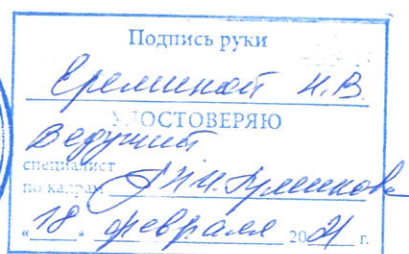 Подпись руки
Ереминой Н.В.
УДОСТОВЕРЯЮ
Ведущий
специалист
по кадрам
"18" февраля 2021 г.